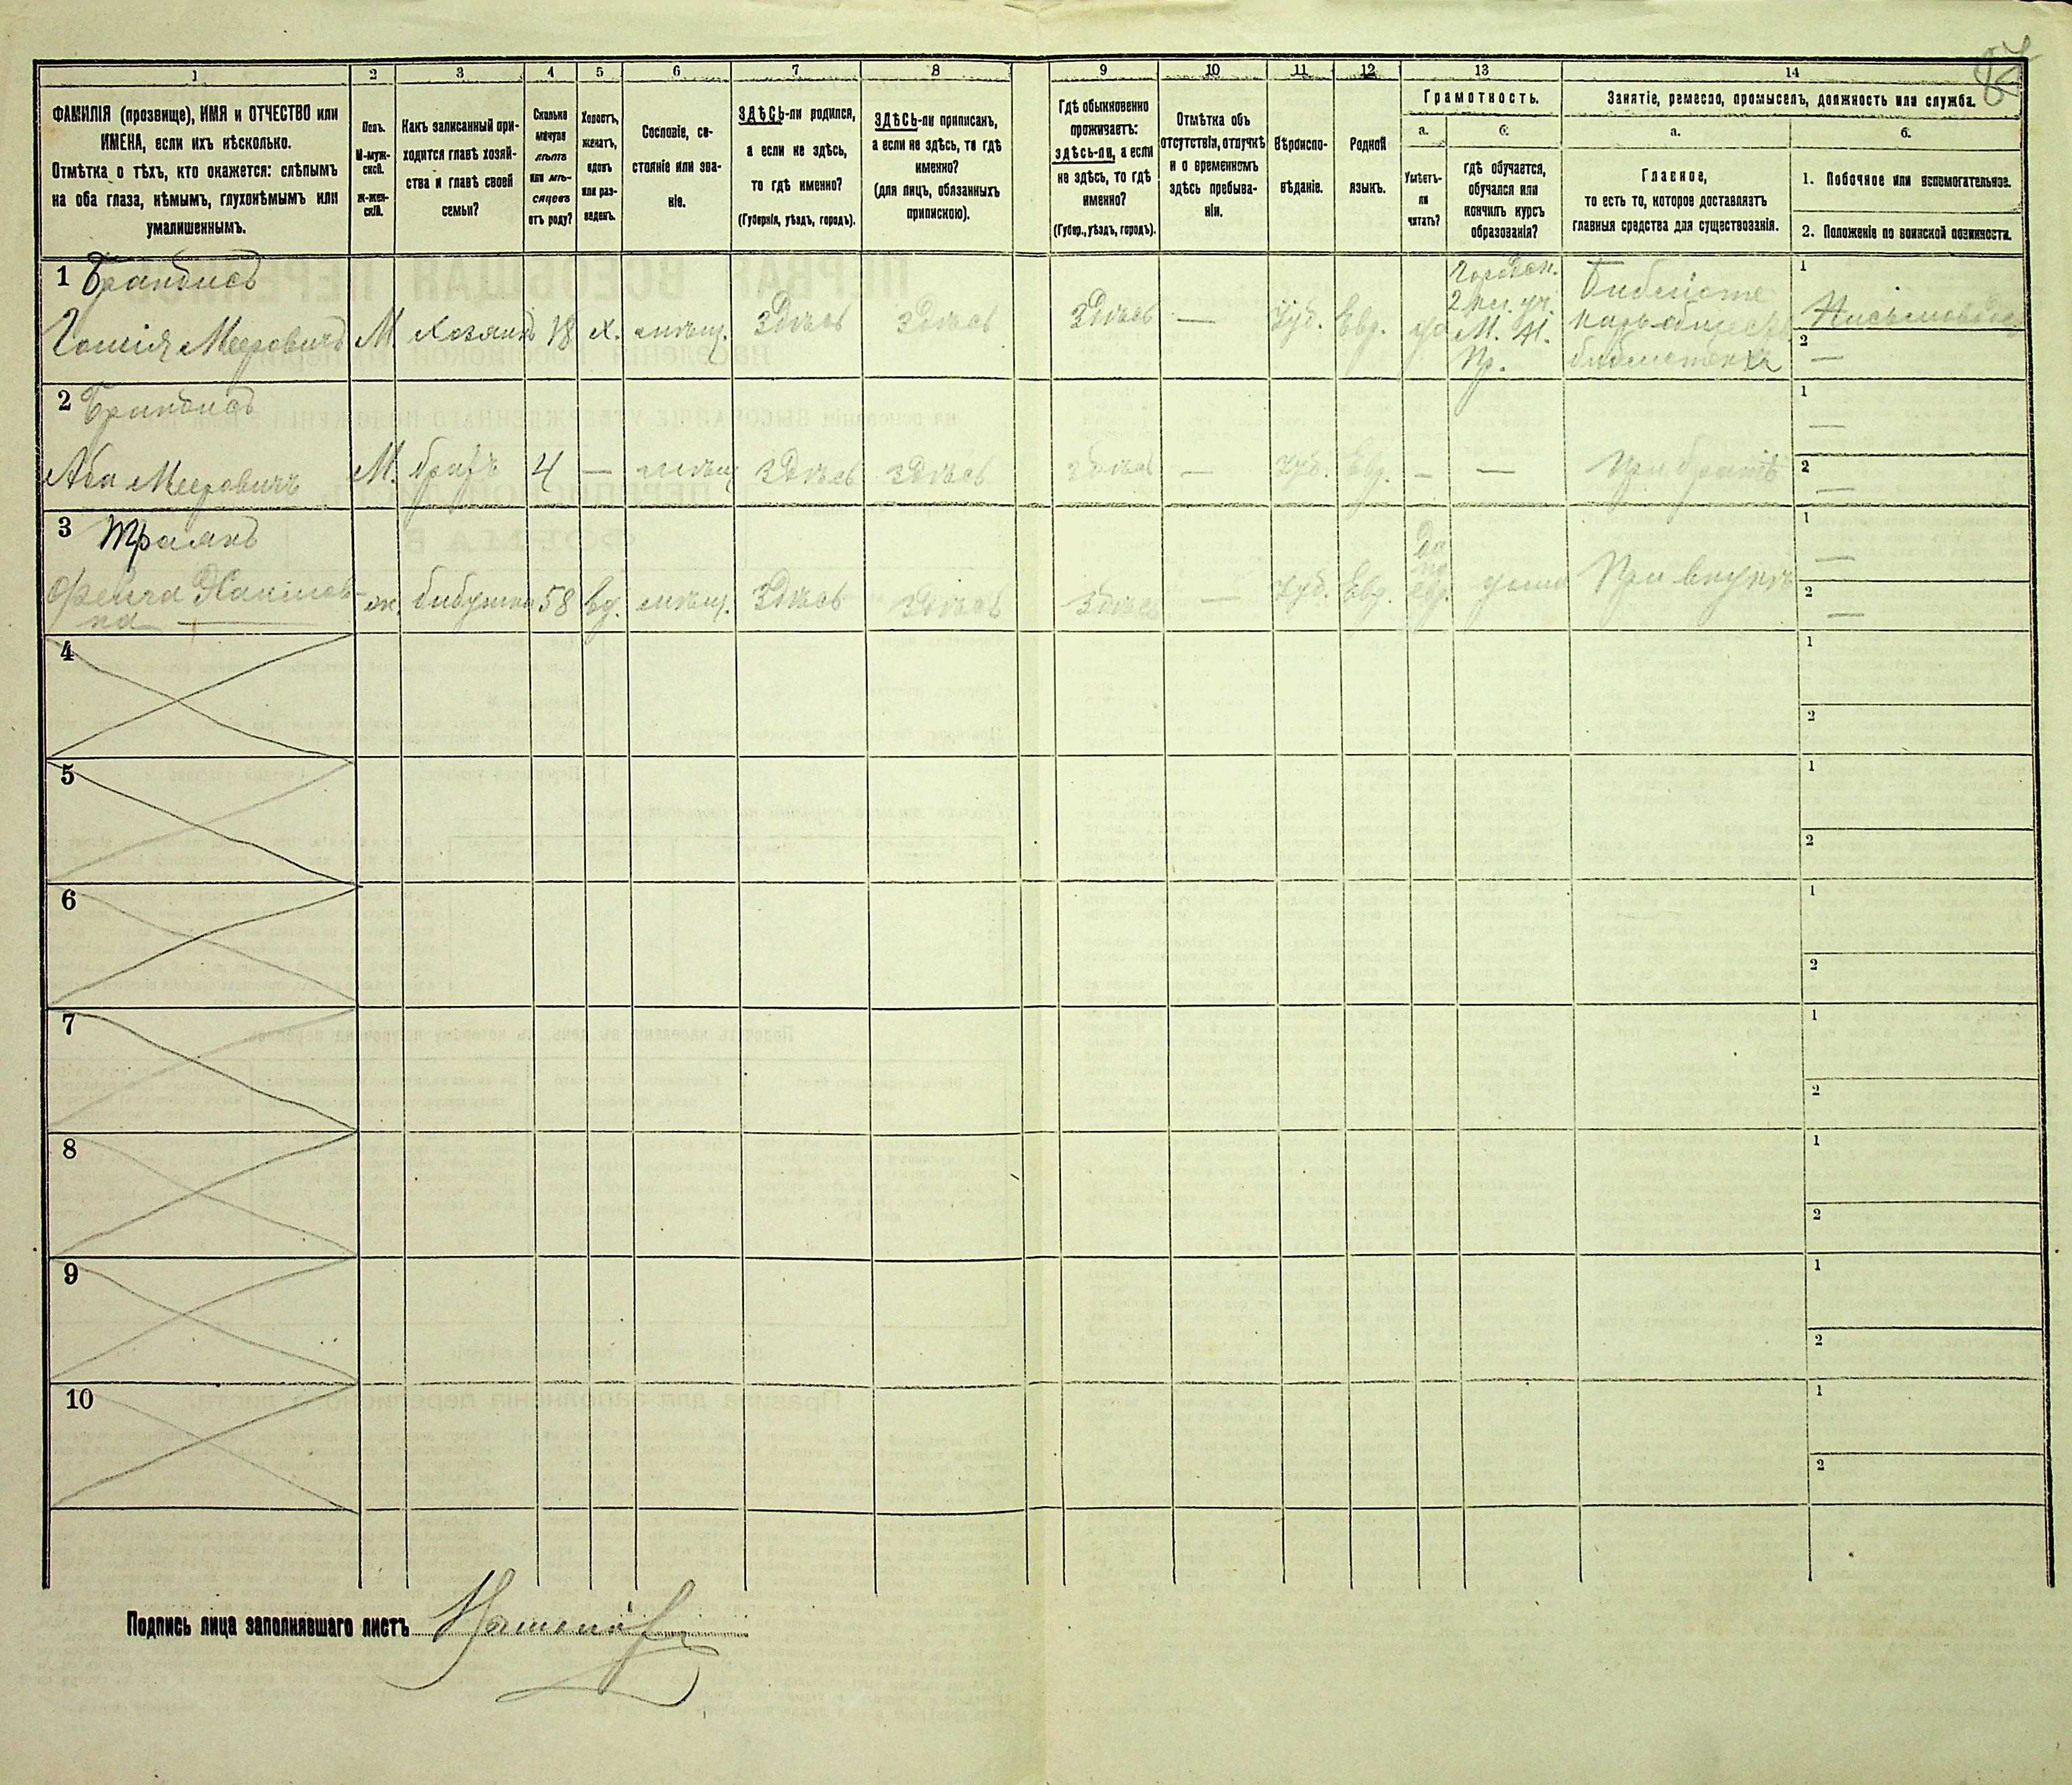 87
1 2 3 4 5 6 7 8 9 10 11 12 13 14
ФАМИЛІЯ (прозвище), ИМЯ и ОТЧЕСТВО или
ИМЕНА, если ихъ нѣсколько.
Отмѣтка о тѣхъ, кто окажется: слѣпымъ
на оба глаза, нѣмымъ, глухонѣмымъ или
умалишеннымъ.
Полъ.
М-муж-
ской.
ж-жен-
скій.
Какъ записанный при-
ходится главѣ хозяй-
ства и главѣ своей
семьи?
Сколько
минуло
лѣтъ
или мѣ-
сяцевъ
отъ роду?
Холостъ,
женатъ,
вдовъ
или раз-
веденъ.
Сословіе, со-
стояніе или зва-
ніе.
ЗДѢСЬ-ли родился,
а если не здѣсь,
то гдѣ именно?
(Губернія, уѣздъ, городъ).
ЗДѢСЬ-ли приписанъ,
а если не здѣсь, то гдѣ
именно?
(для лицъ, обязанныхъ
припискою).
Гдѣ обыкновенно
проживаетъ:
здѣсь-ли, а если
не здѣсь, то гдѣ
именно?
(Губер., уѣздъ, городъ).
Отмѣтка объ
отсутствіи, отлучкѣ
и о временномъ
здѣсь пребыва-
ніи.
Вѣроиспо-
вѣданіе.
Родной
языкъ.
Грамотность.
а.
Умѣетъ-
ли
читать?
б.
гдѣ обучается,
обучался или
кончилъ курсъ
образованія?
Занятіе, ремесло, промыселъ, должность или служба.
а.
Главное,
то есть то, которое доставляетъ
главныя средства для существованія.
б.
1. Побочное или вспомогательное.
2. Положеніе по воинской повинности.
1 Брандисъ
Мееровичъ М. Хозяинъ 18 х. мѣщ. Здѣсь Здѣсь Здѣсь — Іуд. Евр.
1
2 —
2 Брандисъ
Аба Мееровичъ М. братъ 4 — мѣщ. Здѣсь Здѣсь Здѣсь — Іуд. Евр. — — при братѣ
1 —
2 —
3
ж. бабушка 58 вд. мѣщ. Здѣсь Здѣсь Здѣсь — Іуд. Евр. да по евр. При внукѣ
1 —
2 —
4
1
2
5
1
2
6
1
2
7
1
2
8
1
2
9
1
2
10
1
2
Подпись лица заполнявшаго листъ